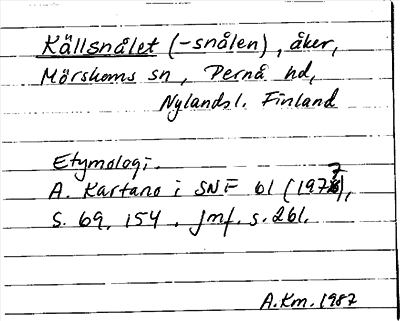 Källsnålet (-snålen), åker,
Mörskoms sn, Pernå hd,
Nylandsl. Finland
Etymologi.
A. Kartano i SNF 61 (1977),
s. 69, 154. Jmf. s. 261.
A.Km. 1987